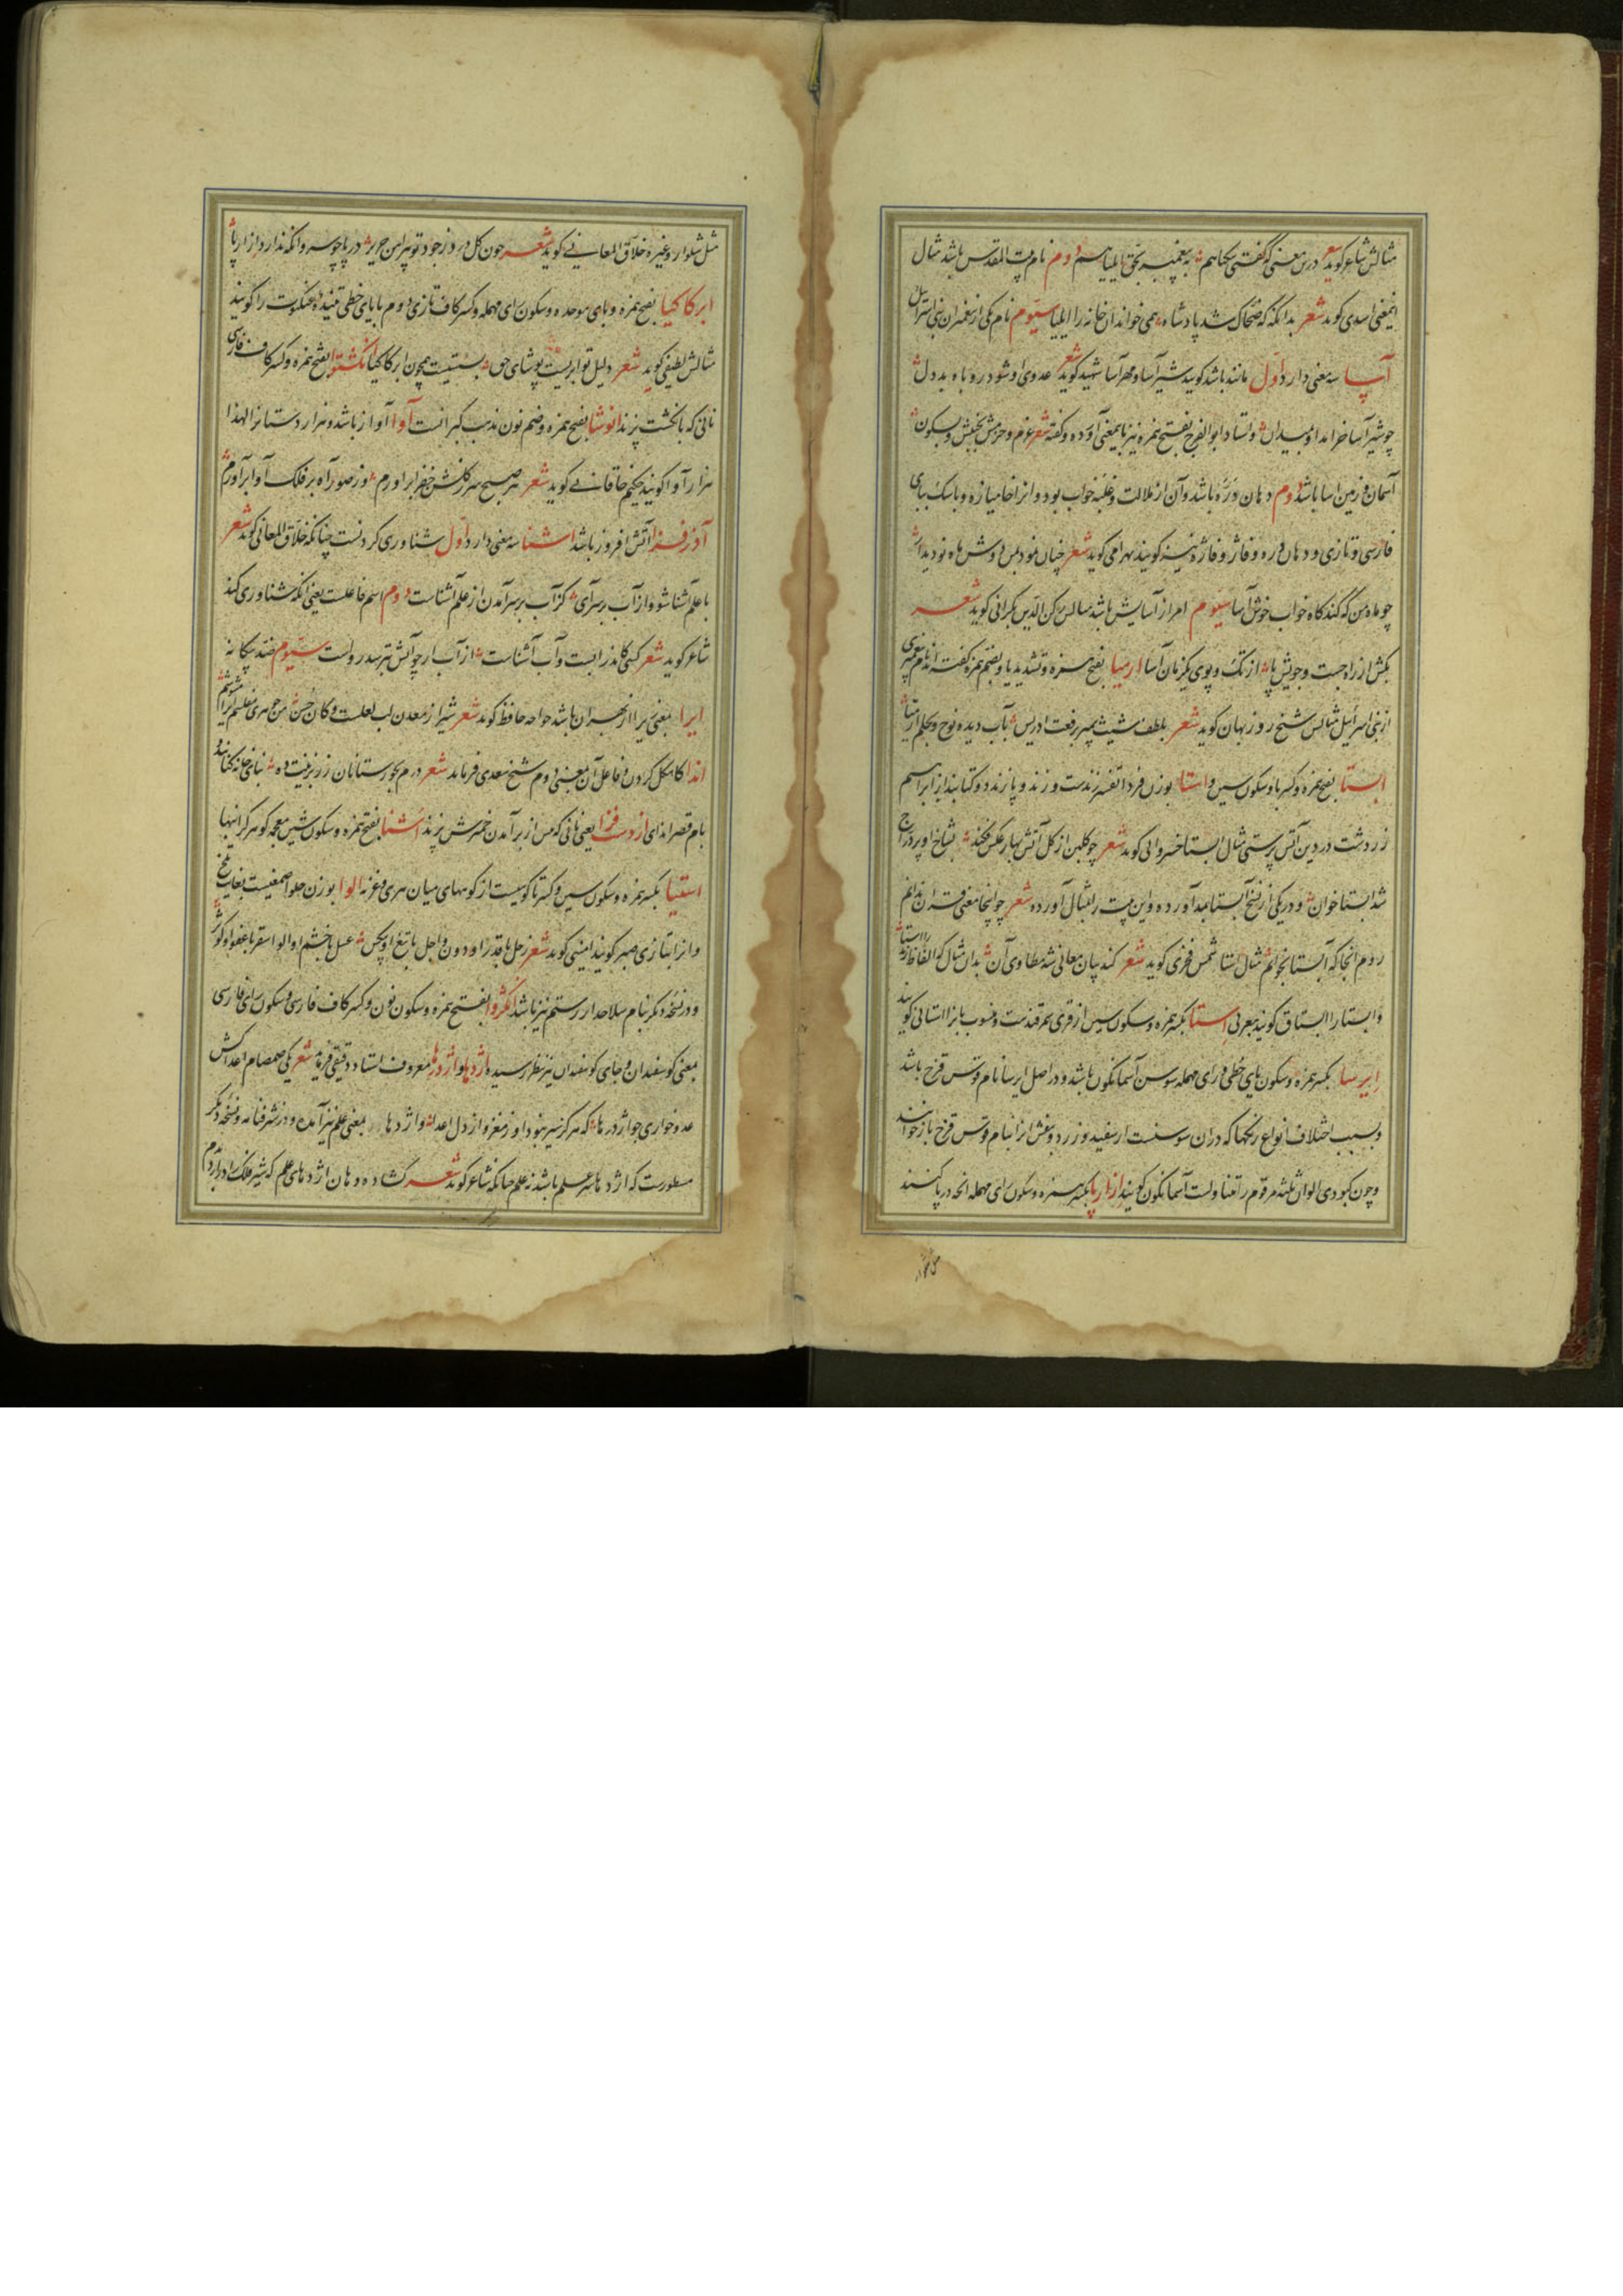 مثالش شاعر کوید شعر درین معنی که گفتی یکجا هم به پیغمبر بحق ایلیا هم دوم نام بیت المقدس باشد مثال
اینمعنی اسدی کوید شعر بدانکه که ضحاک شد پادشاه همی خواندان خانه را ایلیا سیوم نام یکی از پیغمبران بنی اسرائیل
آسا سه معنی دارد اول مانند باشد کویند شیر آسا و مهر آسا شهید کوید شعر عدوی او شود روباه بددل
چو شیر آسا خرامد او بمیدان و استاد ابوالفرج بفتح همزه نیز باینمعنی آورده و کفته شعر عزم و حزمش بجنبش و بسکون
آسمان و زمین اسا باشد دوم دهان دره باشد و آن از ملالت و غلبه خواب بود و انرا خامیازه و باسک ببای
فارسی و تازی و دهان دره و فاژ و فاژه نیز کویند بهرامی کوید شعر چنان نمود بمن دوش ماه نو دیدار
چو ماه من که کند کاه خواب خوش آسا سیوم امر از آسایش باشد مثالش رکن الدین بکرانی کوید شعر
بکش از راه جست و جویش پا از تک و پوی یکزمان آسا ارمیا بفتح همزه و تشدید یا و بضم همزه کفته اند نام پیغمبری
از بنی اسرائیل مثالش شیخ روزبهان کوید شعر بلطف شیث پیمبر برفعت ادریس بآب دیده نوح و بحلم ارمیا
ابستا بفتح همزه و کسر با و سکون سین و استا بوزن فردا تفسیر زندست و زند و پازند دو کتابند از ابراهیم
زردشت در دین آتش پرستی مثال ابستا خسروانی کوید شعر چو کلبن از کل آتش بهار عکس فکند بشاخ او بر دراج
شد ابستا خوان و در یکی از نسخ آبستا بمد آورده و این بیت را بمثال آورده شعر چو اینجا معنی قران ندانم
روم انجا که آبستا بخوانم مثال ستا شمس فخری کوید شعر کند بیان معانی شه مطاوی آن بدان مثال که الفاظ زند را استا
و ابستا را ابستاق کویند بعربی استا بکسر همزه و سکون سین از قری سمرقندست و منسوب بانرا استانی کویند
ایرسا بکسر همزه و سکون یای حطی و رای مهمله سوسن آسمانکون باشد و در اصل ایرسا نام قوس قزح باشد
و بسبب اختلاف انواع رنکها که در ان سوسنست از سفید و زرد و بنفش انرا بنام قوس قزح باز خوانند
و چون کبودی الوان ثلثه مرقوم را متناولست آسمانکون کویند ازارپا بکسر همزه و سکون رای مهمله انچه در پا کنند
مثل شلوار و غیره خلاق المعانی کوید شعر چون کل در روز جود تو پیراهن حریر در پا چو سرو انکه ندارد ازارپا
ابرکاکیا بفتح همزه و بای موحده و سکون رای مهمله و کسر کاف تازی دوم با یای خطی تنیده عنکبوت را کویند
مثالش لطیفی کوید شعر دلیل تو ابریست پوشای حق بسستیست همچون ابرکاکیا انکشتوا بفتح همزه و کسر کاف فارسی
نانی که بانکشت پزند انوشا بفتح همزه و ضم نون مذهب کبرانست آوا آواز باشد و هزار دستانرا لهذا
هزار آوا کویند حکیم خاقانی کوید شعر هر صبح سر ز کلشن خضرا براورم وز صور آه بر فلک آوا برآورم
آذرفزا آتش افروز باشد اشنا سه معنی دارد اول شناوری کردنست چنانکه خلاق المعانی کوید شعر
با علم آشنا شو و از آب بر سر آی کز آب بر سر آمدن از علم آشناست دوم اسم فاعلست یعنی انکه شناوری کند
شاعر کوید شعر کسی کاندر آبست و آب آشناست از آب ار چو آتش بترسد رواست سیوم ضد بیکانه
ایرا بمعنی زیرا از بهر ان باشد خواجه حافظ کوید شعر شیراز معدن لب لعلست و کان حسن من جوهری مفلسم ایرا مشوشم
اندا کاهکل کردن و فاعل آن معنی دوم شیخ سعدی فرماید شعر درم بجورستانان زر بزینت ده بنای خانه کنانند و
بام قصر اندای ازدست فزا یعنی نانی که پس از برآمدن خمیرش پزند اشنا بفتح همزه و سکون شین معجمه کوهر کرانبها
استیا بکسر همزه و سکون سین و کسر تا کوهیست از کوههای میان هری و غزنه الوا بوزن حلوا صمغیست بغایت تلخ
و انرا بتازی صبر کویند امینی کوید شعر زحل با قدر او دون و اجل با تیغ او بیکس عسل با خشم او الوا سقر با عفو او کوثر
و در نسخه دیکر بنام سلاحدار رستم نیز باشد انکژوا بفتح همزه و سکون نون و کسر کاف فارسی و سکون رای فارسی
بمعنی کوسفندان و جای کوسفندان نیز بنظر رسیده اژدها و اژدرها معروف استاد دقیقی فرماید شعر یکی صمصام اعدا کش
عدو خواری چو اژدرها که هرکز سیر نبود او ز مغز و از دل اعدا و اژدها بمعنی علم نیز آمده و در شرفنامه و نسخه دیکر
مسطورست که اژدها سر علم باشد نه علم چنانکه شاعر کوید شعر کشاده دهان اژدهای علم که شیر فلک را درارد بدم